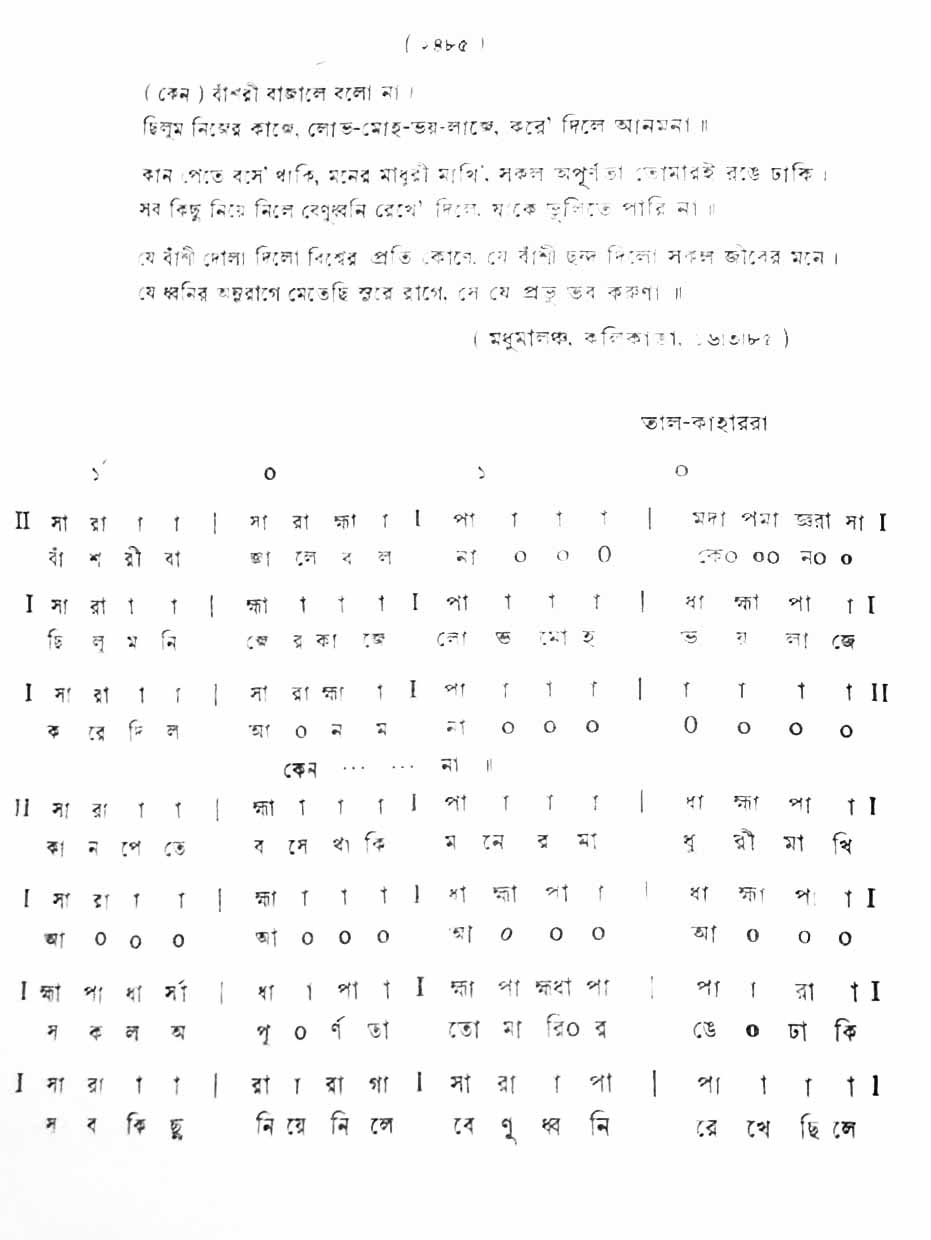 ( ১৪৮৫ )
( কেন ) বাঁশরী বাজালে বলো না ।
ছিলুম নিজের কাজে, লোভ-মোহ-ভয়-লাজে, করে' দিলে আনমনা ॥
কান পেতে বসে' থাকি, মনের মাধুরী মাখি', সকল অপূর্ণতা তোমারই রঙে ঢাকি ।
সব কিছু নিয়ে নিলে বেণুধ্বনি রেখে' দিলে, যাকে ভুলিতে পারি না ॥
যে বাঁশী দোলা দিলো বিশ্বের প্রতি কোণে, যে বাঁশী ছন্দ দিলো সকল জীবের মনে ।
যে ধ্বনির অনুরাগে মেতেছি সুরে রাগে, সে যে প্রভু তব করুণা ॥
( মধুমালঞ্চ, কলিকাতা, ১৬।৩।৮৫ )
তাল-কাহাররা
১´ ০ ১ ০
II সা রা া া | সা রা হ্মা া I পা া া া | মদা পমা জ্ঞরা সা I
বাঁ শ রী বা জা লে ব ল না ০ ০ ০ কে০ ০০ ন০ ০
I সা রা া া | হ্মা া া া I পা া া া | ধা হ্মা পা া I
ছি লু ম নি জে র কা জে লো ভ মো হ ভ য় লা জে
I সা রা া া | সা রা হ্মা া I পা া া া | া া া া II
ক রে দি ল আ ০ ন ম না ০ ০ ০ ০ ০ ০ ০
কেন ... ... না ॥
II সা রা া া | হ্মা া া া I পা া া া | ধা হ্মা পা া I
কা ন পে তে ব সে থা কি ম নে র মা ধু রী মা খি
I সা রা া া | হ্মা া া া I ধা হ্মা পা া | ধা হ্মা পা া I
আ ০ ০ ০ আ ০ ০ ০ আ ০ ০ ০ আ ০ ০ ০
I হ্মা পা ধা র্সা | ধা া পা া I হ্মা পা হ্মধা পা | পা া রা া I
স ক ল অ পূ ০ র্ণ তা তো মা রি০ র ঙে ০ ঢা কি
I সা রা া া | রা া রা গা I সা রা া পা | পা া া া I
স ব কি ছু নি য়ে নি লে বে ণু ধ্ব নি রে খে ছি লে